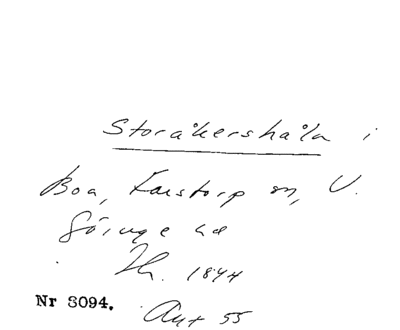 Storåkershåla i
Boa, Farstorp sn, V.
Göinge hd
Th. 1844
Nr 8094. Aut 55